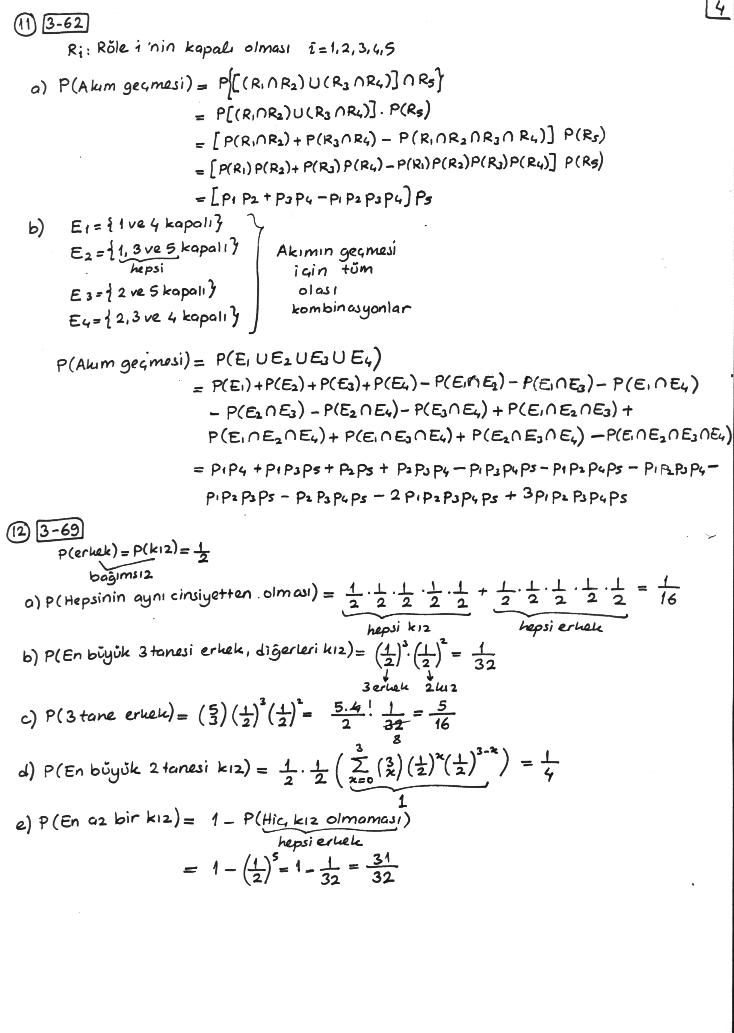 4
⑪ 3-62
Ri: Röle i 'nin kapalı olması i=1,2,3,4,5
a) P(Akım geçmesi) = P{[(R1∩R2)∪(R3∩R4)]∩R5}
= P[(R1∩R2)∪(R3∩R4)]. P(R5)
= [P(R1∩R2)+P(R3∩R4) - P(R1∩R2∩R3∩R4)] P(R5)
= [P(R1)P(R2)+P(R3)P(R4)-P(R1)P(R2)P(R3)P(R4)] P(R5)
= [P1 P2 + P3 P4 - P1 P2 P3 P4] P5
b) E1 = {1 ve 4 kapalı}
E2 = {1, 3 ve 5 kapalı}
hepsi
E3 = {2 ve 5 kapalı}
E4 = {2,3 ve 4 kapalı}
Akımın geçmesi
için tüm
olası
kombinasyonlar
P(Akım geçmesi) = P(E1 ∪ E2 ∪ E3 ∪ E4)
= P(E1)+P(E2)+P(E3)+P(E4)-P(E1∩E2)-P(E1∩E3)-P(E1∩E4)
- P(E2∩E3) - P(E2∩E4)-P(E3∩E4)+P(E1∩E2∩E3)+
P(E1∩E2∩E4)+P(E1∩E3∩E4)+P(E2∩E3∩E4)-P(E1∩E2∩E3∩E4)
= P1P4 + P1P3P5 + P2P5 + P2P3P4 - P1P3P4P5 - P1P2P4P5 - P1P2P3P4 -
P1P2P3P5 - P2P3P4P5 - 2P1P2P3P4P5 + 3P1P2P3P4P5
⑫ 3-69
P(erkek) = P(kız) = 1/2
bağımsız
a) P(Hepsinin aynı cinsiyetten olması) = 1/2 · 1/2 · 1/2 · 1/2 · 1/2 + 1/2 · 1/2 · 1/2 · 1/2 · 1/2 = 1/16
hepsi kız hepsi erkek
b) P(En büyük 3 tanesi erkek, diğerleri kız) = (1/2)³·(1/2)² = 1/32
3 erkek 2 kız
c) P(3 tane erkek) = (5 3)(1/2)³(1/2)² = 5.4/2 ! 1/32 = 5/16
8
d) P(En büyük 2 tanesi kız) = 1/2 · 1/2 (3 Σ x=0 (3 x)(1/2)^x (1/2)^3-x) = 1/4
1
e) P(En az bir kız) = 1 - P(Hiç kız olmaması)
hepsi erkek
= 1 - (1/2)^5 = 1 - 1/32 = 31/32